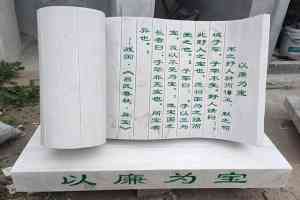 以廉为宝
宋之野人耕而得玉，献之司
城子罕，子罕不受。野人请曰：
“此野人之宝也，愿相国为之赐而
受之也。”子罕曰：“子以玉为
宝，我以不受为宝。”故宋国之
长者曰：“子罕非无宝也，所宝者
异也。”
——战国·《吕氏春秋·异宝》
以廉为宝